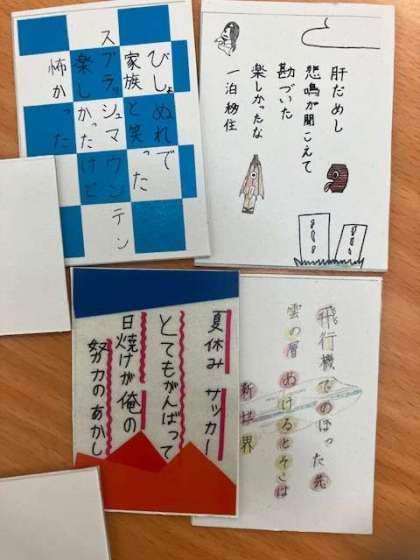 びしょぬれで
家族と笑った
スプラッシュマウンテン
楽しかったけど
怖かった
肝だめし
悲鳴が聞こえて
勘づいた
楽しかったな
一泊移住
夏休み サッカー
とてもがんばって
日焼けが俺の
努力のあかし
飛行機でのぼった先
雲の層 ぬけるとそこは
新世界